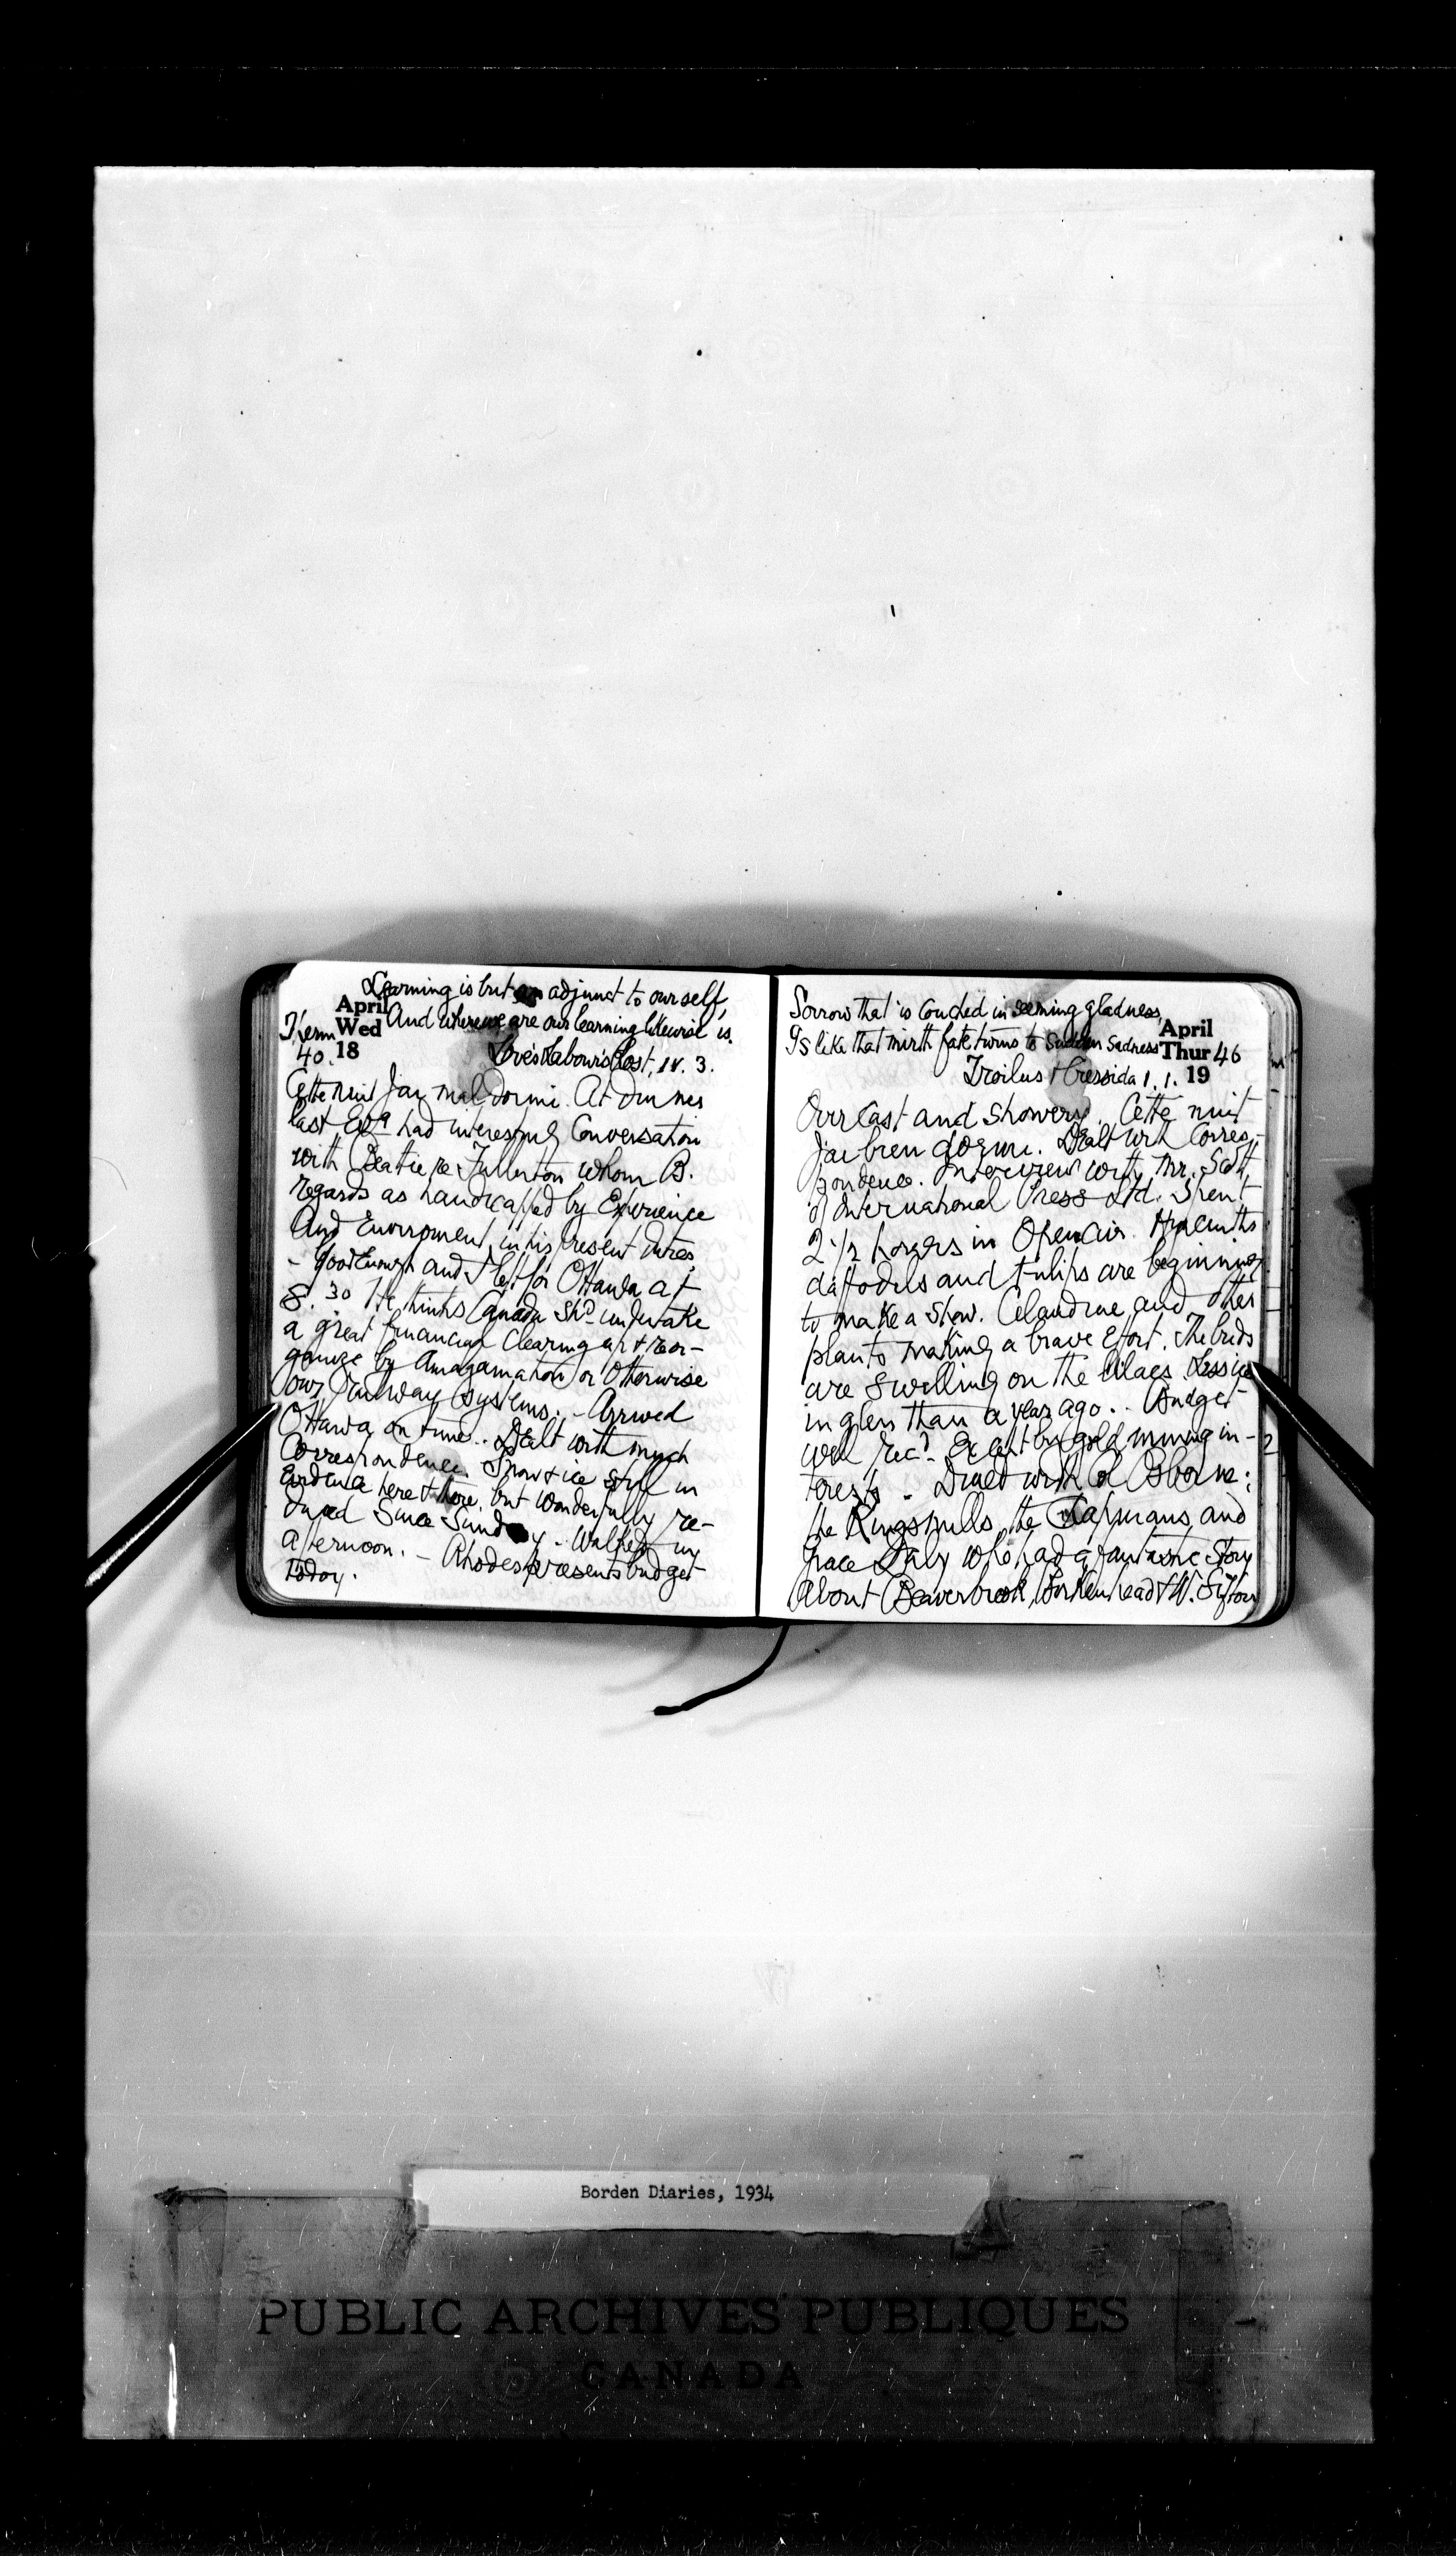 Learning is but an adjunct to our self,
And where we are our learning likewise is.
Love's Labour's Lost, IV. 3.
April
Wed
18
Therm
40.
Cette nuit J'ai mal dormi. At dinner
last Evg had interesting Conversation
with Beatie re Fullerton whom B.
regards as handicapped by Experience
And Enviroment, in his present duties.
- Goodenough and I left for Ottawa at
8.30 He thinks Canada Shd undertake
a great financial Clearing up & reor-
ganize by Amagamation or Otherwise
our Railway Systems. - Arrived
Ottawa on time.. Dealt with much
Correspondence. Snow & ice still in
Evidence here & there, but wonderfully re-
duced Since Sunday - Walked in
afternoon. - Rhodes presents budget
today.
Sorrow that is couched in seeming gladness,
Is like that mirth fate turns to Sudden Sadness
Troilus & Cressida 1. 1.
April
Thur 46
19
Overcast and Showery. Cette nuit
J'ai bien dormi. Dealt with Corres-
pondence. Interview with Mr. Scott
of International Press Ltd. Spent
2 1/2 hours in Open air. Hyacinths
daffodils and tulips are beginning
to make a show. Celandine and other
plants making a brave Effort. The buds
are swelling on the lilacs. Less ice
in glen than a year ago.. Budget
well recd. Except by gold mining in-
terests - Dined with Col Osborne:
the Kingsmills, the Chapmans, and
Grace Daly who had a fantastic Story
About Beaverbrook, Birkenhead & W. Sifton
Borden Diaries, 1934
PUBLIC ARCHIVES PUBLIQUES
CANADA